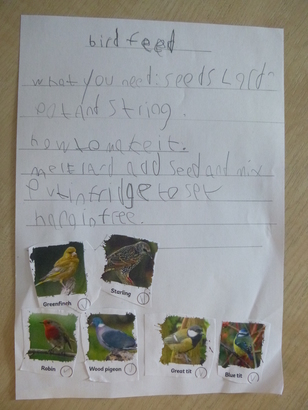 bird feed
what you need: seeds Lard
pot and String.
how to make it.
melt lard add seed and mix
Put in fridge to set
hang in free.
Greenfinch
Starling
Robin
Wood pigeon
Great tit
Blue tit